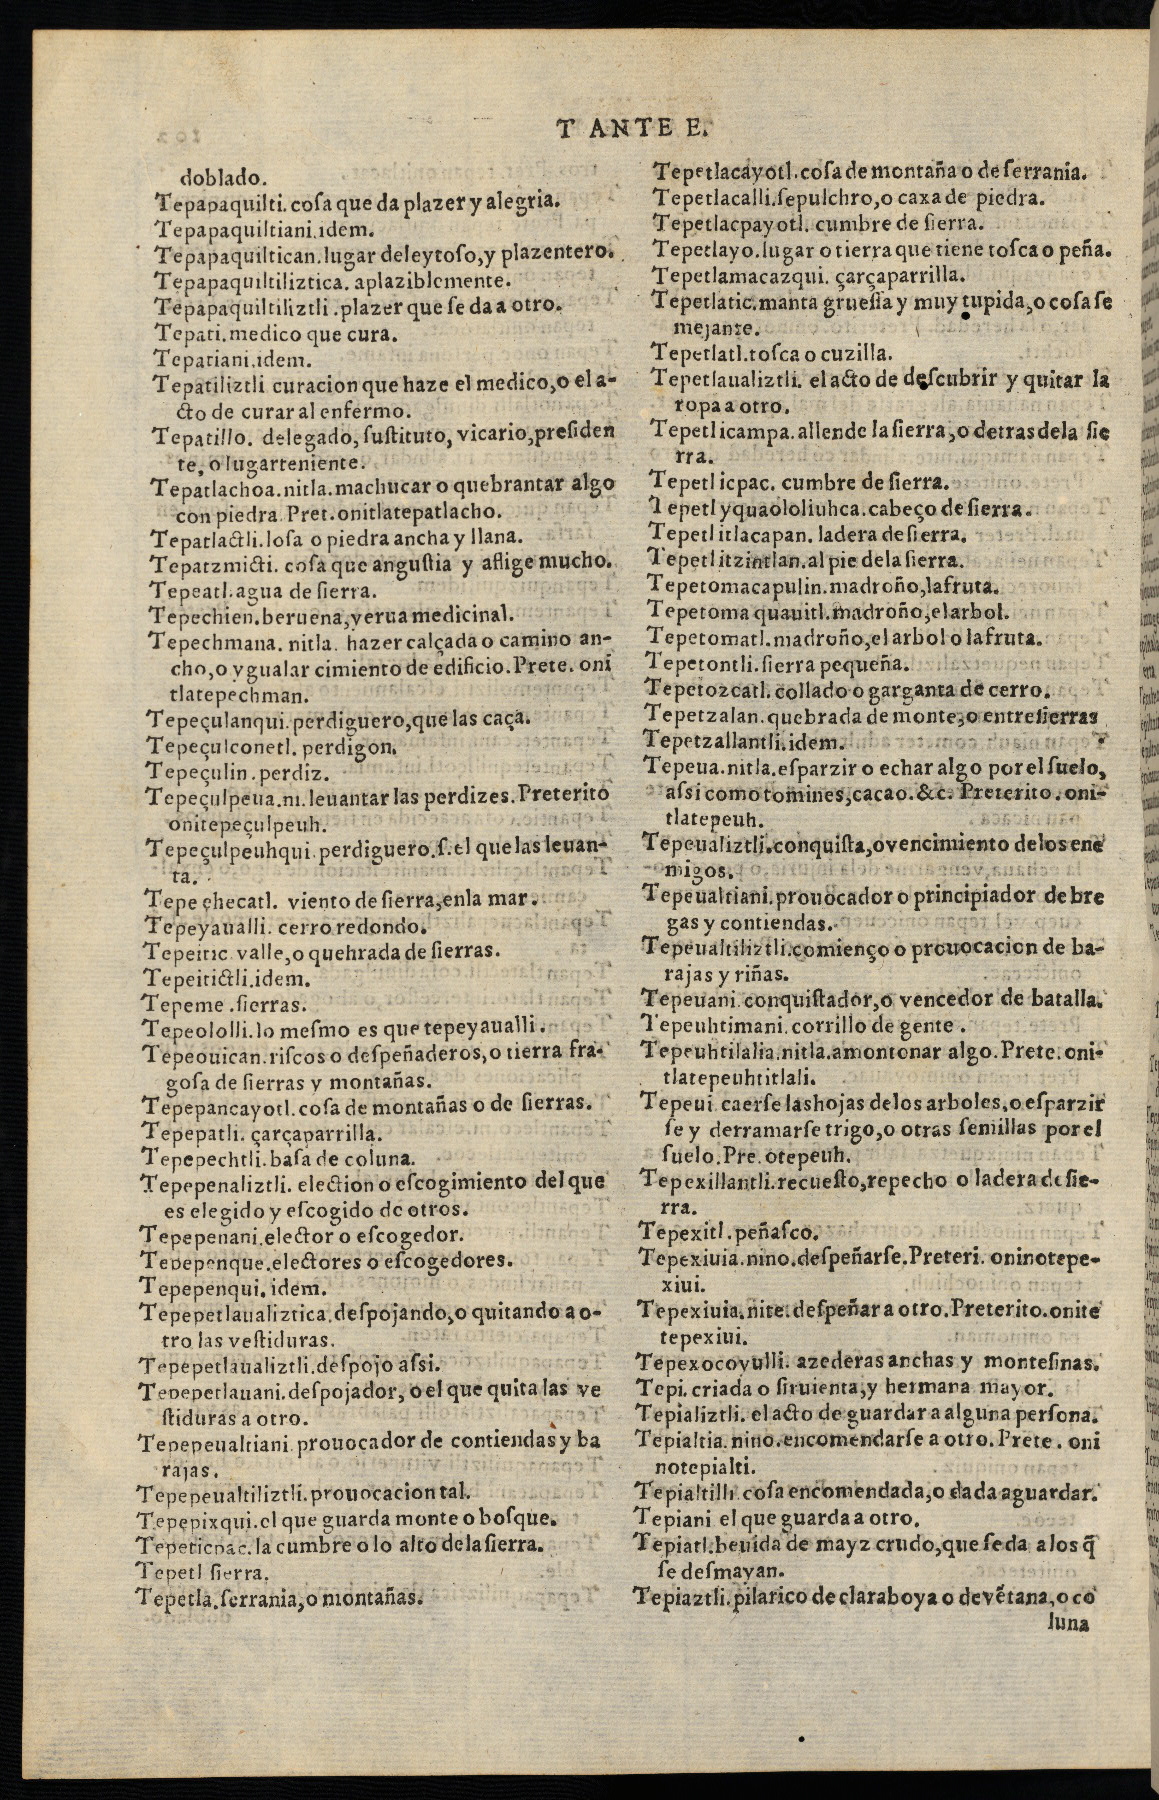 T ANTE E.
doblado.
Tepapaquilti. cosa que da plazer y alegria.
Tepapaquiltiani.idem.
Tepapaquiltican.lugar deleytoso,y plazentero.
Tepapaquiltiliztica. aplaziblemente.
Tepapaquiltiliztli .plazer que se da a otro.
Tepati.medico que cura.
Tepatiani.idem.
Tepatiliztli curacion que haze el medico,o el a-
cto de curar al enfermo.
Tepatillo. delegado, sustituto, vicario,presiden
te, o lugarteniente.
Tepatlachoa.nitla.machucar o quebrantar algo
con piedra. Pret.onitlatepatlacho.
Tepatlactli.losa o piedra ancha y llana.
Tepatzmicti. cosa que angustia y aflige mucho.
Tepeatl.agua de sierra.
Tepechien.beruena,yerua medicinal.
Tepechmana. nitla. hazer calçada o camino an-
cho,o ygualar cimiento de edificio. Prete. oni
tlatepechman.
Tepeçulanqui.perdiguero,que las caça.
Tepeçulconetl. perdigon.
Tepeçulin.perdiz.
Tepeçulpeua.ni.leuantar las perdizes. Preterito
onitepeçulpeuh.
Tepeçulpeuhqui.perdiguero.s.el que las leuan-
ta.
Tepe ehecatl. viento de sierra,enla mar.
Tepeyaualli. cerro redondo.
Tepeitic valle,o quehrada de sierras.
Tepeitictli.idem.
Tepeme .sierras.
Tepeololli.lo mesmo es que tepeyaualli.
Tepeouican.riscos o despeñaderos,o tierra fra-
gosa de sierras y montañas.
Tepepancayotl.cosa de montañas o de sierras.
Tepepatli. çarçaparrilla.
Tepepechtli.basa de coluna.
Tepepenaliztli. election o escogimiento del que
es elegido y escogido de otros.
Tepepenani.elector o escogedor.
Tepepenque.electores o escogedores.
Tepepenqui. idem.
Tepepetlaualiztica.despojando,o quitando a o-
tro las vestiduras.
Tepepetlaualiztli.despojo assi.
Tepepetlauani.despojador, o el que quita las ve
stiduras a otro.
Tepepeualtiani.prouocador de contiendas y ba
rajas.
Tepepeualtiliztli.prouocacion tal.
Tepepixqui.el que guarda monte o bosque.
Tepeticpac.la cumbre o lo alto dela sierra.
Tepetl sierra.
Tepetla.serrania,o montañas.
Tepetlacayotl.cosa de montaña o de serrania.
Tepetlacalli.sepulchro,o caxa de piedra.
Tepetlacpayotl. cumbre de sierra.
Tepetlayo.lugar o tierra que tiene tosca o peña.
Tepetlamacazqui. çarçaparrilla.
Tepetlatic.manta gruessa y muy tupida,o cosa se
mejante.
Tepetlatl.tosca o cuzilla.
Tepetlaualiztli. el acto de descubrir y quitar la
ropa a otro.
Tepetl icampa.allende la sierra,o detras dela sie
rra.
Tepetl icpac. cumbre de sierra.
Tepetl yquaololiuhca.cabeço de sierra.
Tepetl itlacapan. ladera de sierra.
Tepetl itzintlan.al pie dela sierra.
Tepetomacapulin.madroño,la fruta.
Tepetoma quauitl.madroño,el arbol.
Tepetomatl.madroño,el arbol o la fruta.
Tepetontli.sierra pequeña.
Tepetozcatl.collado o garganta de cerro.
Tepetzalan.quebrada de monte,o entre sierras
Tepetzallantli.idem.
Tepeua.nitla.esparzir o echar algo por el suelo,
assi como tomines,cacao.&c. Preterito. oni-
tlatepeuh.
Tepeualiztli.conquista,o vencimiento delos ene
migos.
Tepeualtiani.prouocador o principiador de bre
gas y contiendas.
Tepeualtiliztli.comienço o prouocacion de ba-
rajas y riñas.
Tepeuani.conquistador,o vencedor de batalla.
Tepeuhtimani.corrillo de gente .
Tepeuhtilalia.nitla.amontonar algo. Prete. oni-
tlatepeuhtitlali.
Tepeui caerse las hojas delos arboles,o esparzir
se y derramarse trigo,o otras semillas por el
suelo.Pre. otepeuh.
Tepexillantli.recuesto,repecho o ladera de sie-
rra.
Tepexitl.peñasco.
Tepexiuia.nino.despeñarse.Preteri. oninotepe-
xiui.
Tepexiuia.nite.despeñar a otro.Preterito.onite
tepexiui.
Tepexocoyulli. azederas anchas y montesinas.
Tepi.criada o siruienta,y hermana mayor.
Tepializtli. el acto de guardar a alguna persona.
Tepialtia.nino.encomendarse a otro. Prete. oni
notepialti.
Tepialtilli cosa encomendada,o dada aguardar.
Tepiani el que guarda a otro.
Tepiatl.beuida de mayz crudo,que se da a los q̃
se desmayan.
Tepiaztli.pilarico de claraboya o de vẽtana,o co
luna